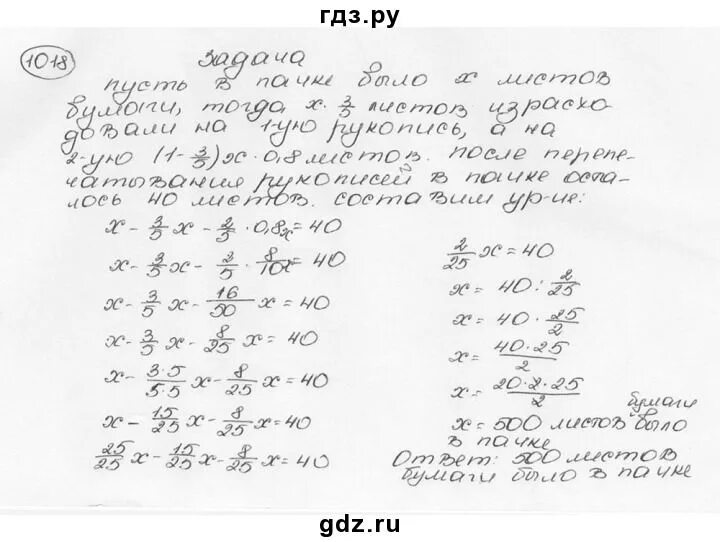 гдз.ру
1018 Задача
пусть в пачке было x листов
бумаги, тогда x · 3/5 листов израсхо-
довали на 1-ую рукопись, а на
2-ую (1-3/5)x · 0,8 листов. после перепе-
чатывания рукописей в пачке оста-
лось 40 листов. составим ур-ие:
x - 3/5 x - 2/5 · 0,8x = 40
x - 3/5 x - 2/5 · 8/10 x = 40
x - 3/5 x - 16/50 x = 40
x - 3/5 x - 8/25 x = 40
x - 3·5/5·5 x - 8/25 x = 40
x - 15/25 x - 8/25 x = 40
25/25 x - 15/25 x - 8/25 x = 40
2/25 x = 40
x = 40 : 2/25
x = 40 · 25/2
x = 40·25/2
x = 20·2·25/2
x = 500 листов бумаги было
в пачке
Ответ: 500 листов
бумаги было в пачке
gdz.ru